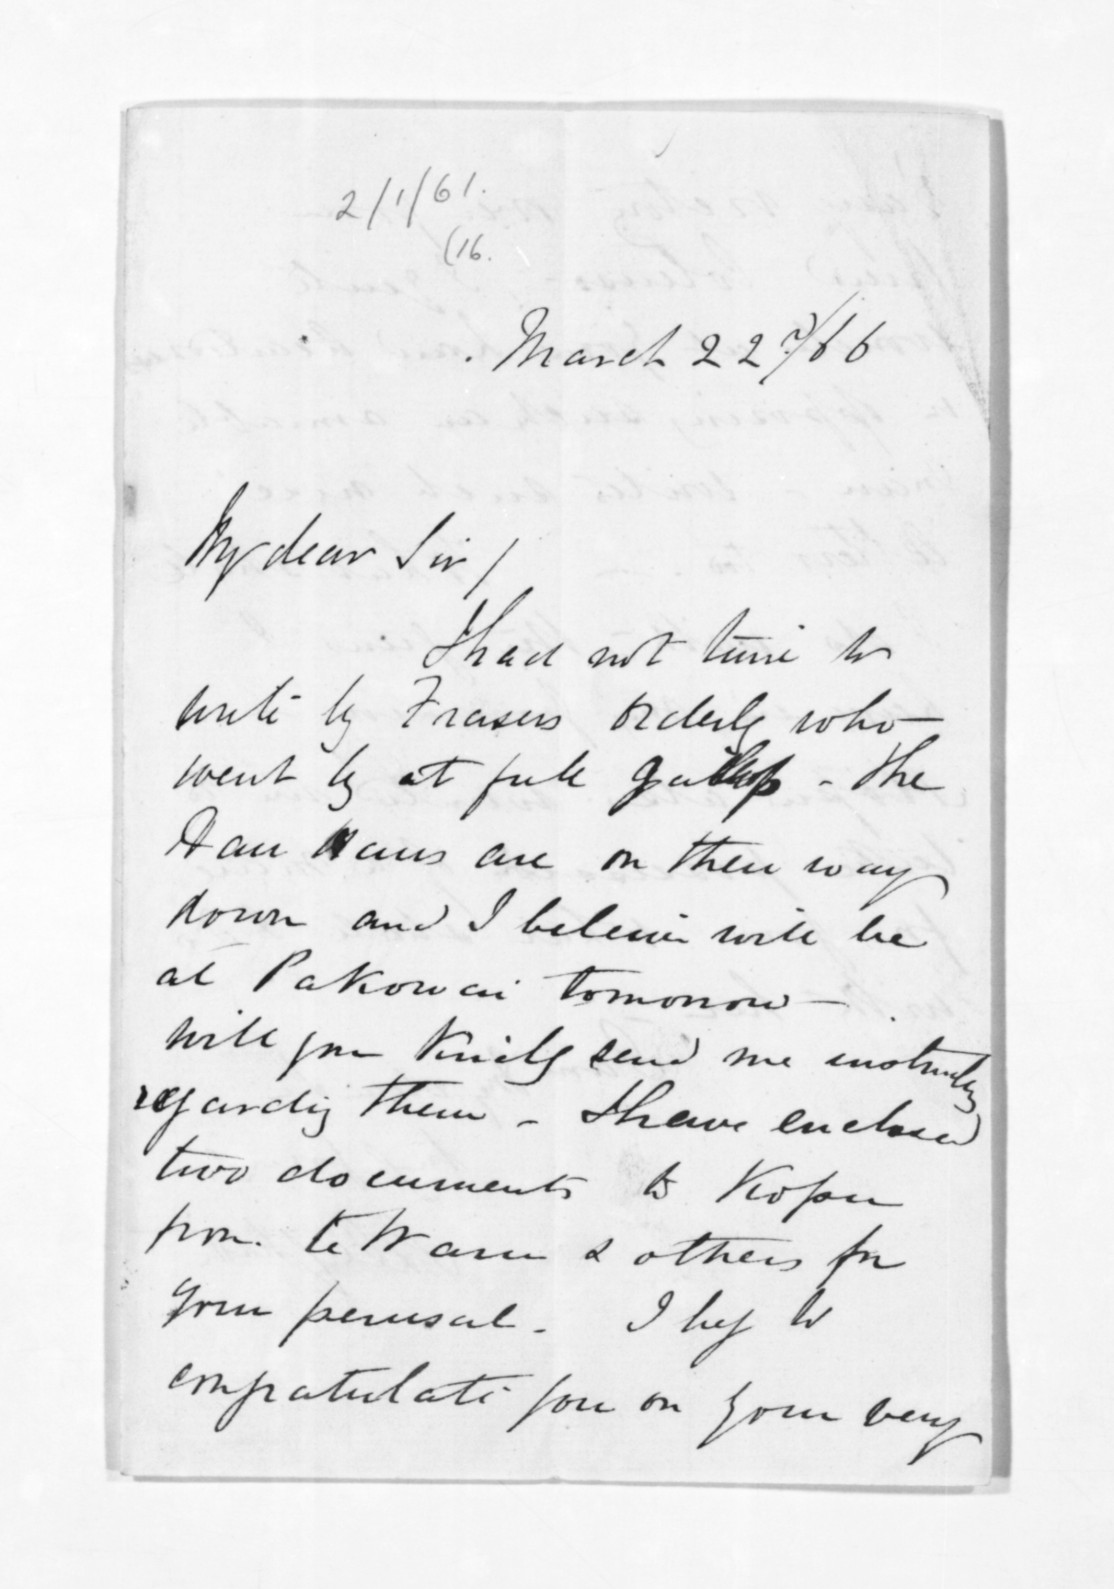 2/1/61.
(16.
March 22d/66
My dear Sir/
I had not time to
write by Frasers orderly who
went by at full gallop - The
Hau Haus are on their way
down and I beleive will be
at Pakowai tomorrow -
will you kindly send me instructns
regarding them - I have enclosed
two documents to Kopu
from te Waru & others for
your perusal. I beg to
congratulate you on your very